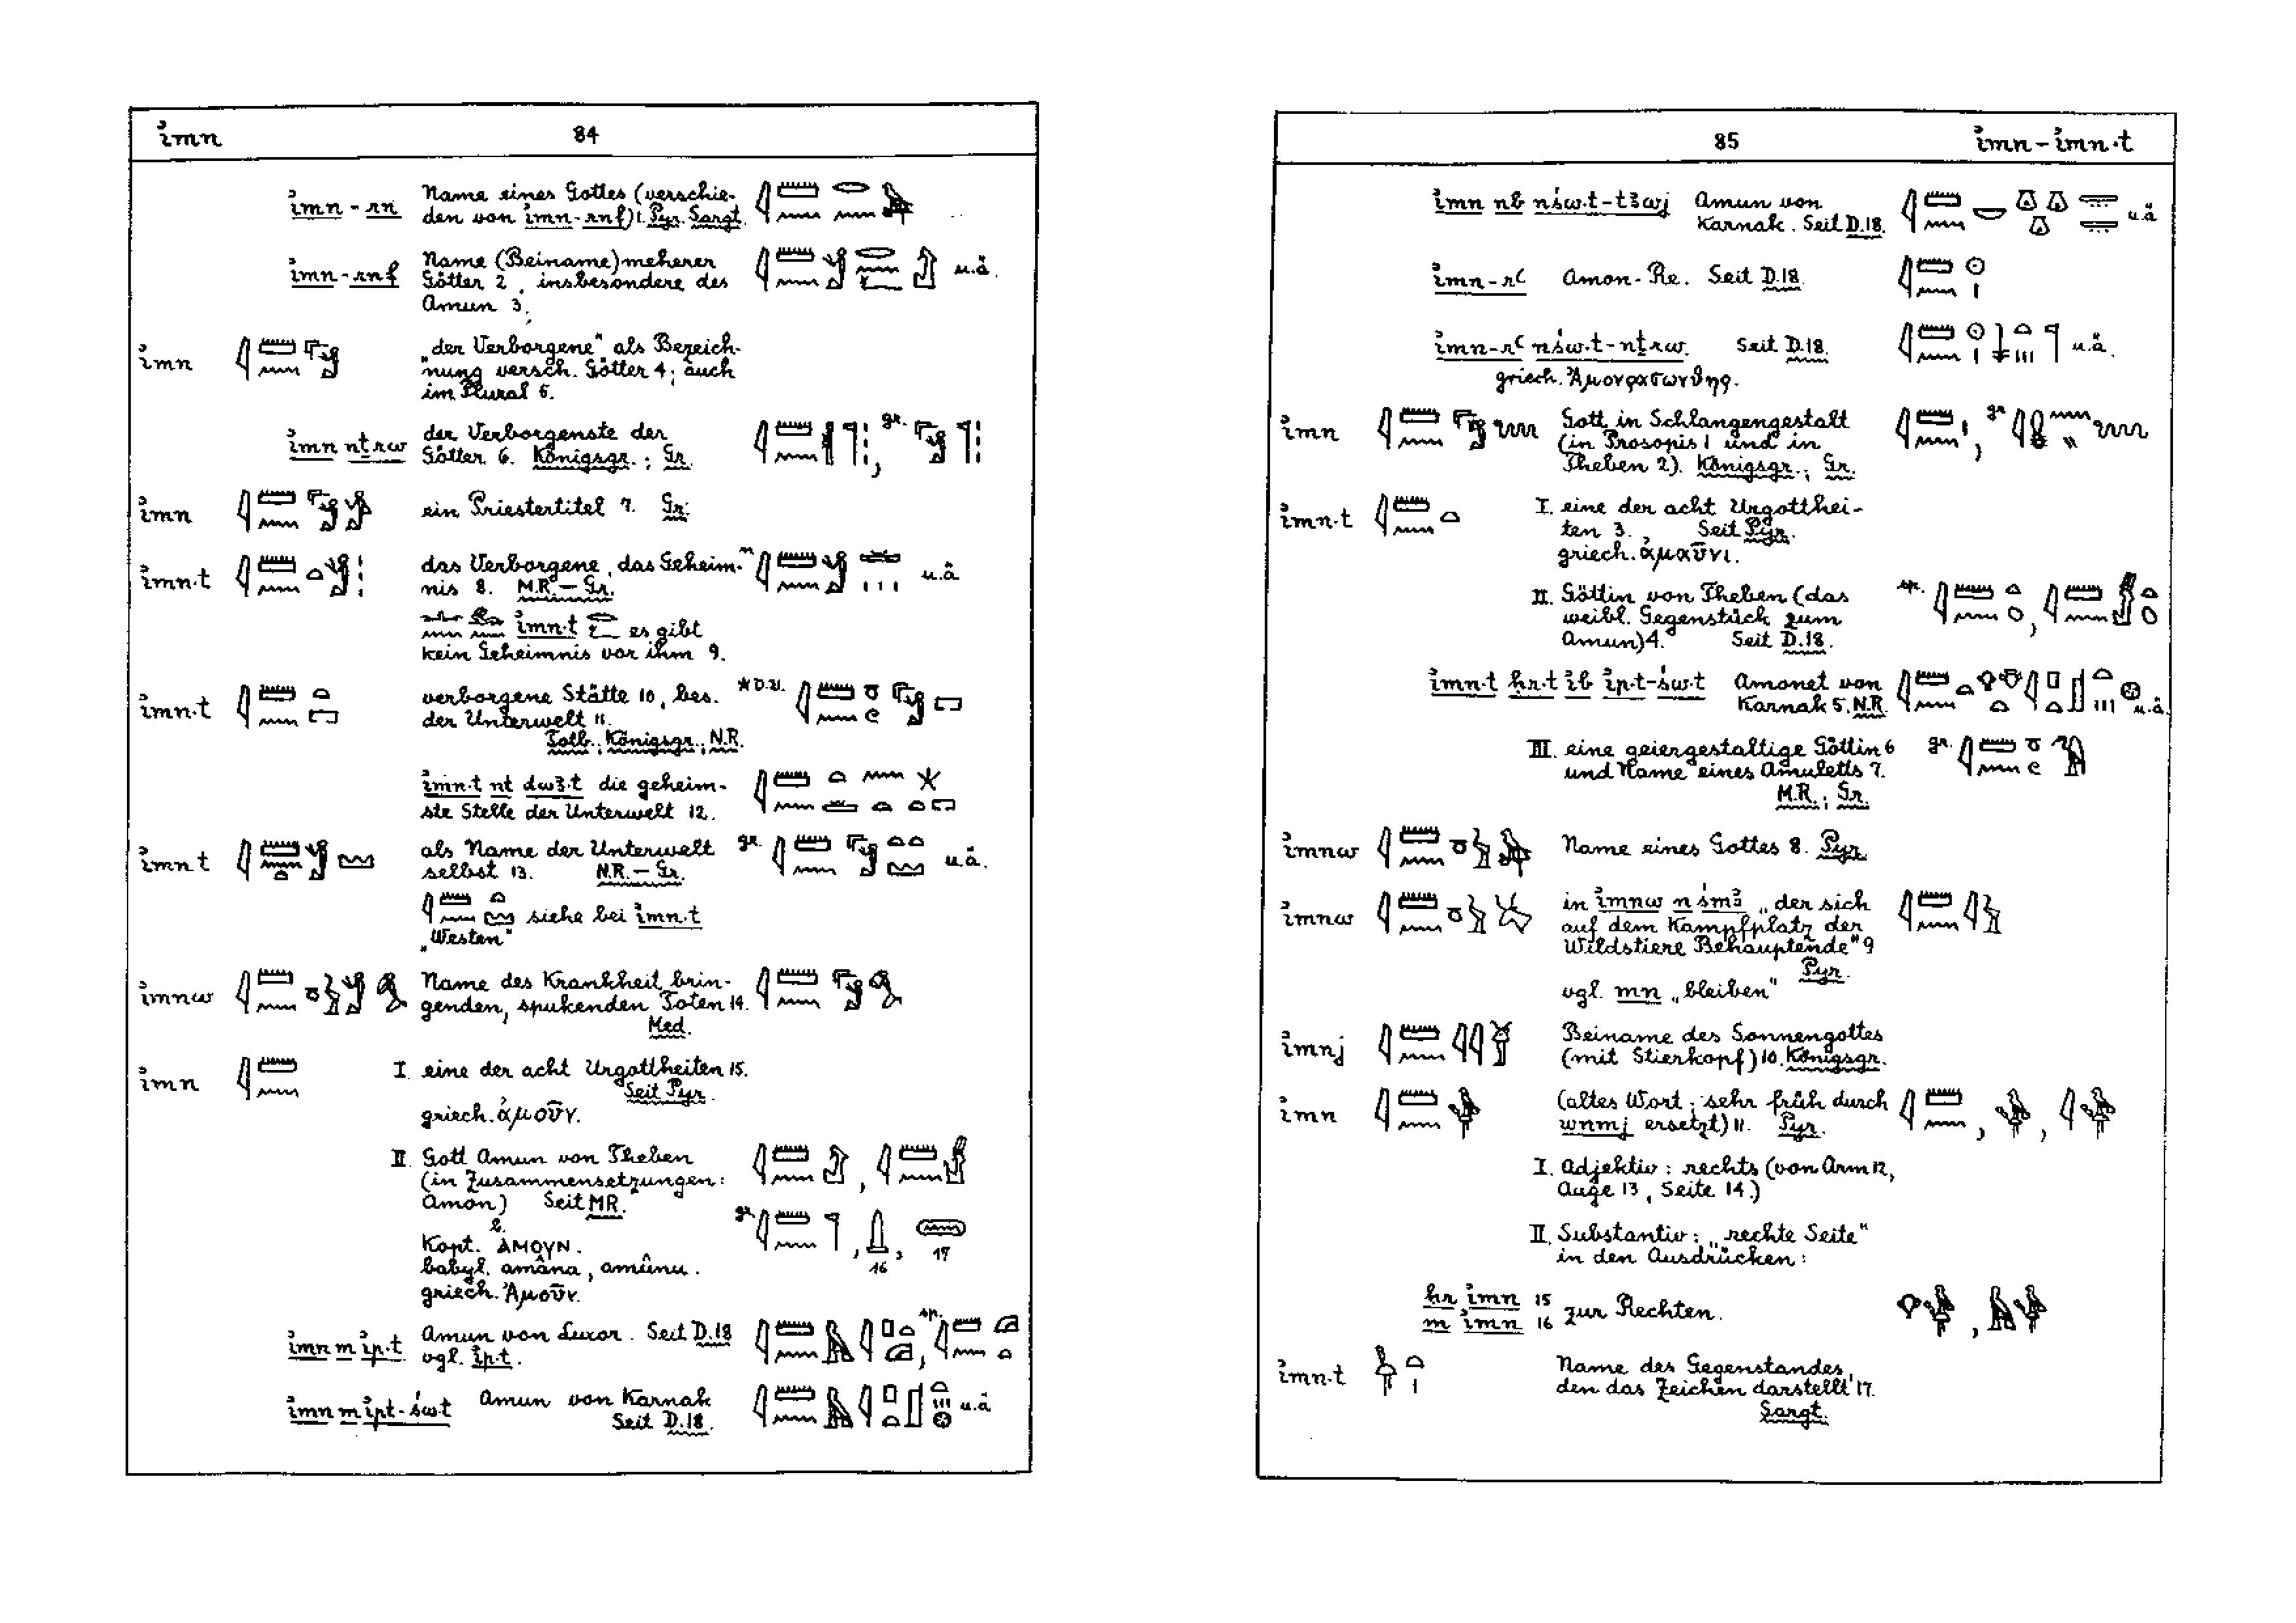 imn 84
imn-rn Name eines Gottes (verschie-
den von imn-rnf) 1. Pyr. Sargt.
imn-rnf Name (Beiname) meherer
Götter 2, insbesondere des u.ä.
Amun 3.
imn „der Verborgene“ als Bezeich-
nung versch. Götter 4; auch
im Plural 5.
imn nṯrw der Verborgenste der gr.
Götter 6. Königsgr.; Gr.
imn ein Priestertitel 7. Gr.
imn·t das Verborgene, das Geheim- u.ä
nis 8. M.R. – Gr.
imn·t es gibt
kein Geheimnis vor ihm 9.
imn·t verborgene Stätte 10, bes. *D.21.
der Unterwelt 11.
Totb.; Königsgr.; N.R.
imn·t nt dwꜣ·t die geheim-
ste Stelle der Unterwelt 12.
imn t als Name der Unterwelt gr. u.ä.
selbst 13. N.R. – Gr.
siehe bei imn·t
„Westen“
imnw Name des Krankheit brin-
genden, spukenden Toten 14.
Med.
imn I eine der acht Urgottheiten 15.
Seit Pyr.
griech. ἀμοῦν.
II Gott Amun von Theben
(in Zusammensetzungen:
Amon) Seit MR.
gr. 16 17
Kopt. ⲁⲙⲟⲩⲛ.
babyl. amâna, amûnu.
griech. Ἀμοῦν.
imn m ip·t Amun von Luxor. Seit D.18 sp.
vgl. ip·t.
imn m ipt-św·t Amun von Karnak u.ä
Seit D.18.
85 imn – imn·t
imn nb nśw·t-tꜣwj Amun von
Karnak. Seit D.18. u.ä
imn-rꜥ Amon-Re. Seit D.18.
imn-rꜥ nśw·t-nṯrw. Seit D.18. u.ä.
griech. Ἀμονρασωνθηρ.
imn Gott in Schlangengestalt gr
(in Prosopis 1 und in
Theben 2). Königsgr.; Gr.
imn·t I. eine der acht Urgotthei-
ten 3. Seit Pyr.
griech. ἀμαῦνι.
II. Göttin von Theben (das sp.
weibl. Gegenstück zum
Amun) 4. Seit D.18.
imn·t ḥr·t ib ip·t-św·t Amonet von
Karnak 5. N.R. u.ä.
III. eine geiergestaltige Göttin 6 gr.
und Name eines Amuletts 7.
M.R.; Gr.
imnw Name eines Gottes 8. Pyr.
imnw in imnw n śmꜣ „der sich
auf dem Kampfplatz der
Wildstiere Behauptende“ 9
Pyr.
vgl. mn „bleiben“
imnj Beiname des Sonnengottes
(mit Stierkopf) 10. Königsgr.
imn (altes Wort; sehr früh durch
wnmj ersetzt) 11. Pyr.
I. Adjektiv: rechts (von Arm 12,
Auge 13, Seite 14.)
II. Substantiv: „rechte Seite“
in den Ausdrücken:
ḥr imn 15
m imn 16 zur Rechten.
imn·t Name des Gegenstandes,
den das Zeichen darstellt 17.
Sargt.